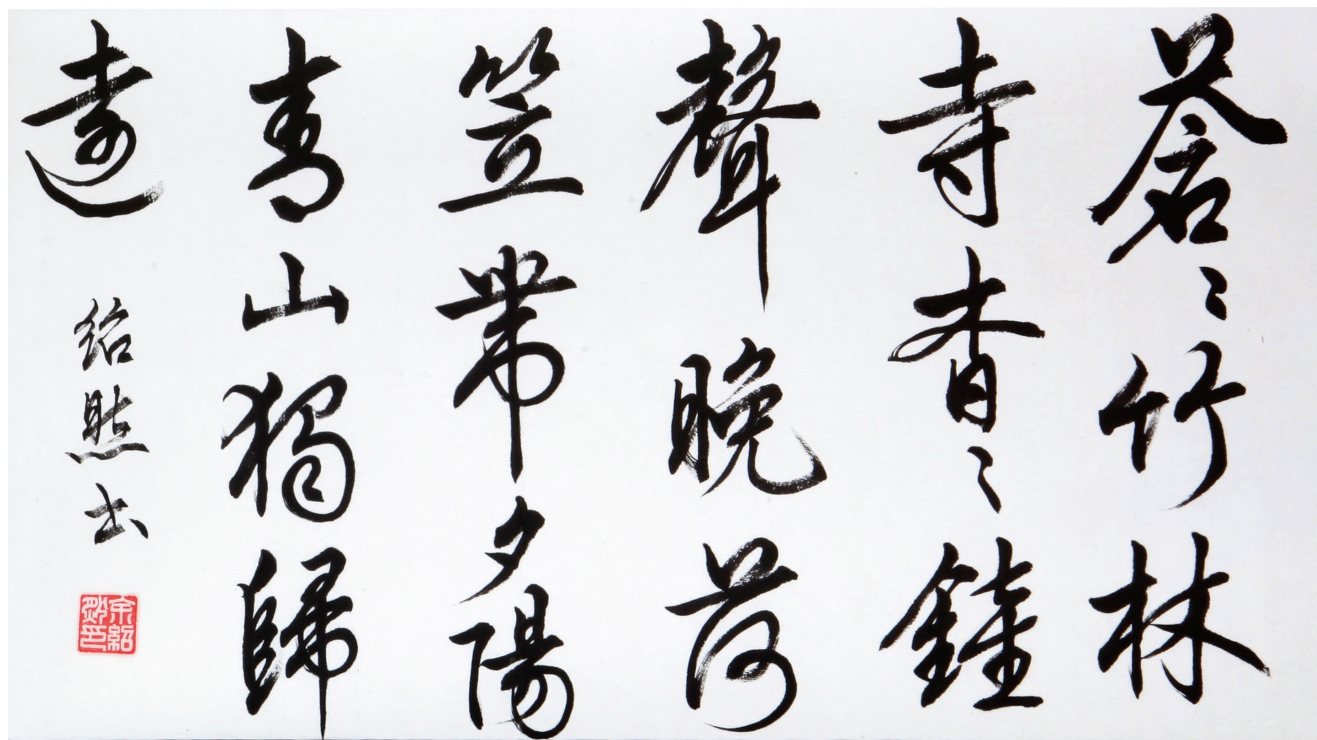 蒼〻竹林
寺杳〻鐘
聲晚荷
笠帶夕陽
青山獨歸
遠
紹 书
余紹 印